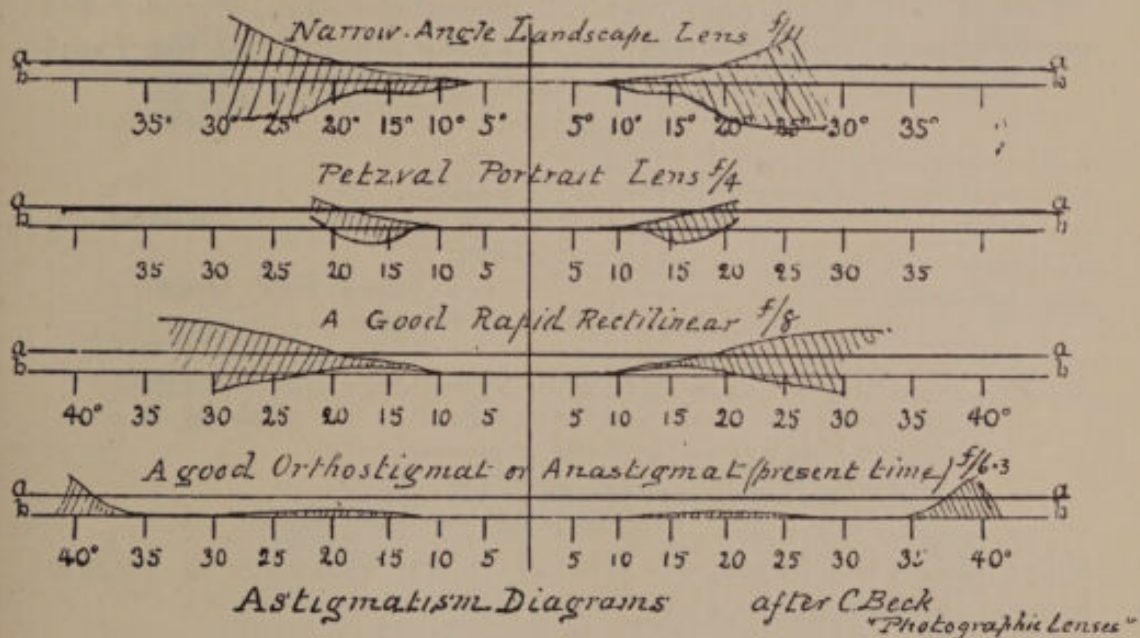 Narrow-Angle Landscape Lens f/11
a a
b b
35° 30° 25° 20° 15° 10° 5° 5° 10° 15° 20° 25° 30° 35°
Petzval Portrait Lens f/4
a a
b b
35 30 25 20 15 10 5 5 10 15 20 25 30 35
A Good Rapid Rectilinear f/8
a a
b b
40° 35 30 25 20 15 10 5 5 10 15 20 25 30 35 40°
A good Orthostigmat or Anastigmat (present time) f/6·3
a a
b b
40° 35 30 25 20 15 10 5 5 10 15 20 25 30 35 40°
Astigmatism Diagrams after C. Beck
"Photographic Lenses"